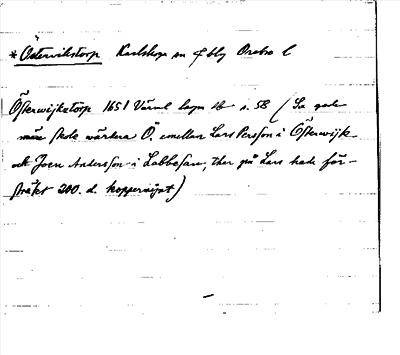 * Östervikstorp Karlskoga sn f bg Örebro l
Österwijkztorp 1651 Värml lagm db s. 58 (Sa gode
män skole wärdera Ö. emellan Lars Persson i Österwijk
och Joen Andersson i Labbesan, ther på Lars hade för-
sträkt 200. d. koppermynt)